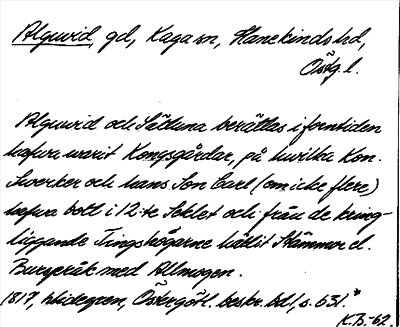 Alguvid, gd, Kaga sn, Hanekinds hd,
Östg. l.
Alguvid och Sätuna berättas i forntiden
hafva warit Kongsgårdar, på hvilka Kon.
Swerker och hans Son Carl (om icke flere)
hafva bott i 12-te Seklet och från de kring-
liggande Tingshögarne hållit Stämmor el.
Burspråk med Allmogen.
1817, Widegren, Östergötl. beskr. bd I, s. 631.*
K.B.-62.